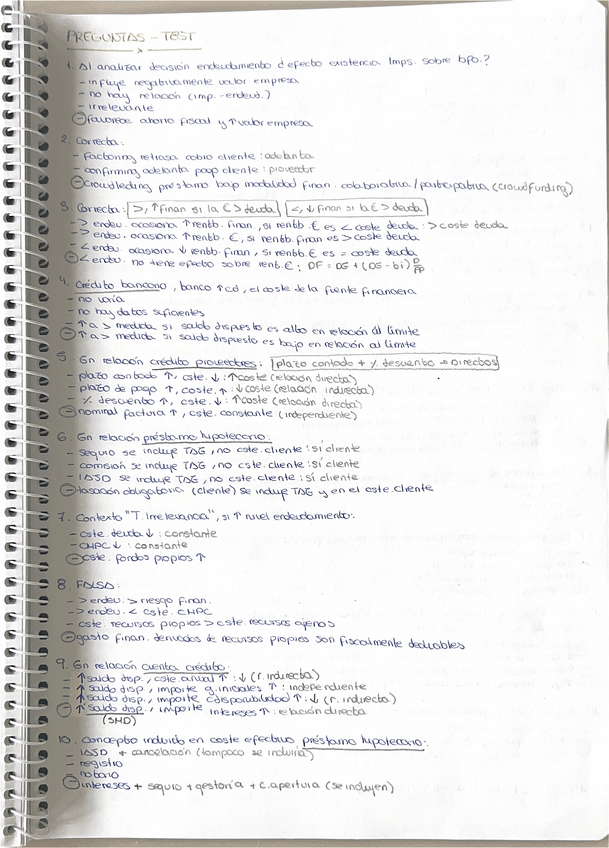 PREGUNTAS - TEST
1. Al analizar decisión endeudamiento d efecto existencia Imps. sobre bfo.?
- influye negativamente valor empresa
- no hay relación (imp.-endeud.)
- irrelevante
- favorece ahorro fiscal y ↑ valor empresa
2. Correcta:
- factoring retrasa cobro cliente : adelanta
- confirming adelanta pago cliente : proveedor
- crowdlending préstamo bajo modalidad finan. colaborativa / participativa (crowdfunding)
3. Correcta: >, ↑ finan si la € > deuda <, ↓ finan si la € > deuda
- > endeu. ocasiona ↑ rentb. finan, si rentb. € es < coste deuda : > coste deuda
- > endeu. ocasiona ↑ rentb. €, si rentb. finan es > coste deuda
- < endeu. ocasiona ↓ rentb. finan, si rentb. € es = coste deuda
- < endeu. no tiene efecto sobre rentb. €;
4. Crédito bancario, banco ↑ cd, el coste de la fuente financiera
- no varía
- no hay datos suficientes
- ↑ a > medida si saldo dispuesto es alto en relación al límite
- ↑ a > medida si saldo dispuesto es bajo en relación al límite
5. En relación crédito proveedores: plazo contado + % descuento → Directos
- plazo contado ↑, cste. ↓ : ↑ coste (relación directa)
- plazo de pago ↑, coste. ↑ : ↓ coste (relación indirecta)
- % descuento ↑, cste. ↓ : ↑ coste (relación directa)
- nominal factura ↑, cste. constante (independiente)
6. En relación préstamo hipotecario:
- seguro se incluye TAG, no cste. cliente : sí cliente
- comisión se incluye TAG, no cste. cliente : sí cliente
- IAJD se incluye TAG, no cste. cliente : sí cliente
- tasación obligatoria (cliente) se incluye TAG y en el cste. cliente
7. Contexto "T. Irrelevancia", si ↑ nivel endeudamiento:
- cste. deuda ↓ : constante
- CMPC ↓ : constante
- cste. fondos propios ↑
8. FALSA:
- > endeu. > riesgo finan.
- > endeu. < cste. CMPC
- cste. recursos propios > cste. recursos ajenos
- gasto finan. derivados de recursos propios son fiscalmente deducibles
9. En relación cuenta crédito:
- ↑ saldo disp., cste. anual ↑ : ↓ (r. indirecta)
- ↑ saldo disp., importe g. iniciales ↑ : independiente
- ↑ saldo disp., importe c. disponibilidad ↑ : ↓ (r. indirecta)
- ↑ saldo disp., importe intereses ↑ : relación directa
(SMD)
10. Concepto incluido en coste efectivo, préstamo hipotecario:
- IAJD + cancelación (tampoco se incluiría)
- registro
- notario
- intereses + seguro + gestoría + c. apertura (se incluyen)